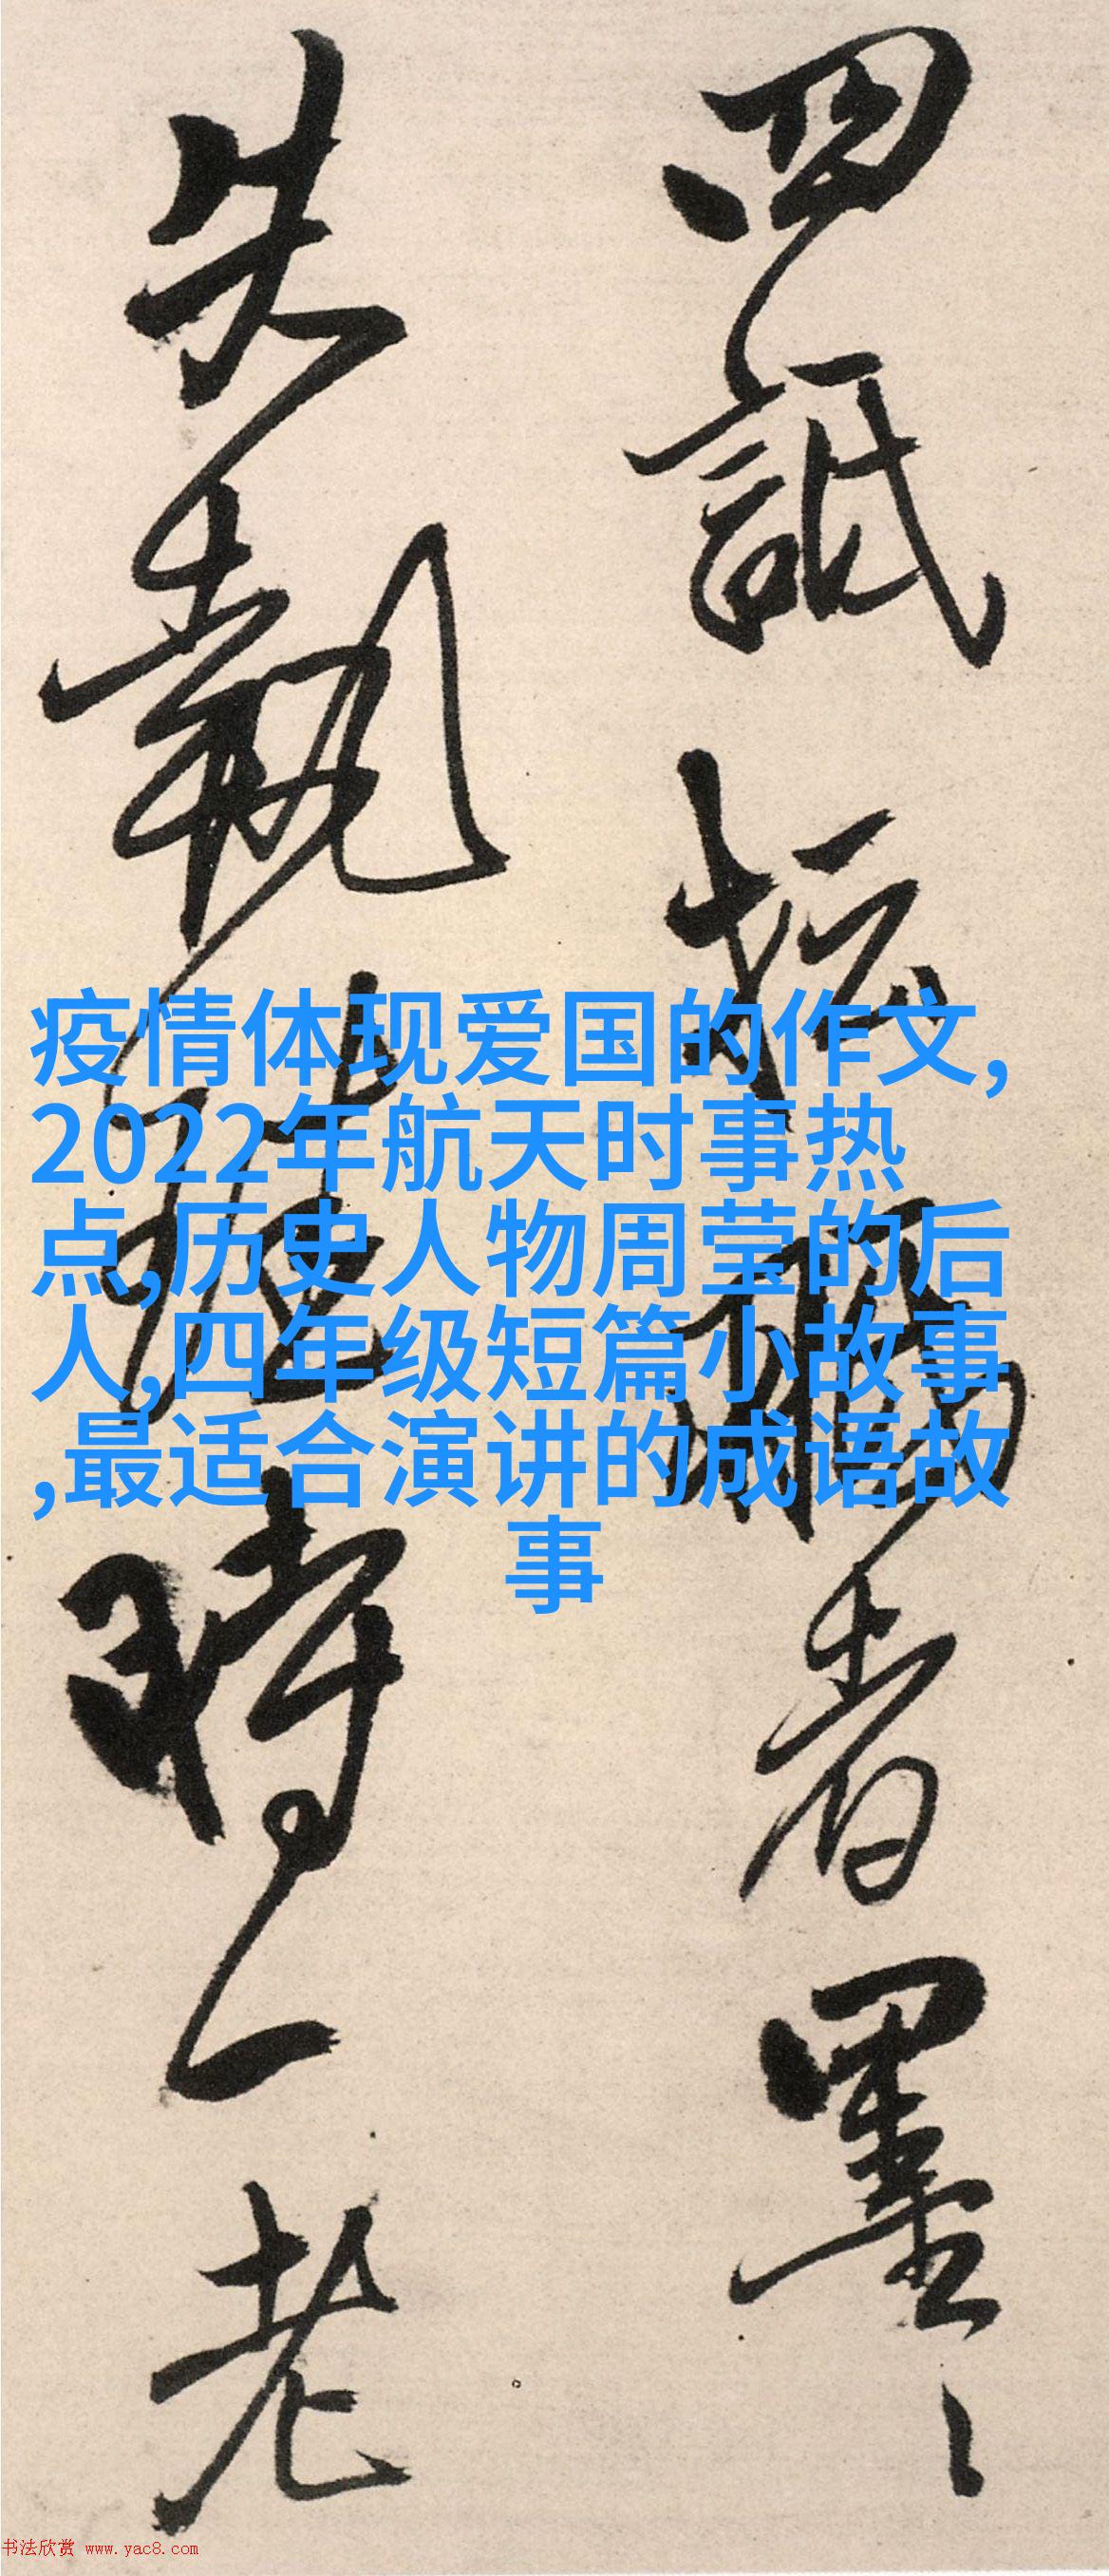 疫情体现爱国的作文,
2022年航天时事热
点,历史人物周莹的后
人,四年级短篇小故事
,最适合演讲的成语故
事
四詆壇
者墨
失執
時一老
书法欣赏 www.yac8.com